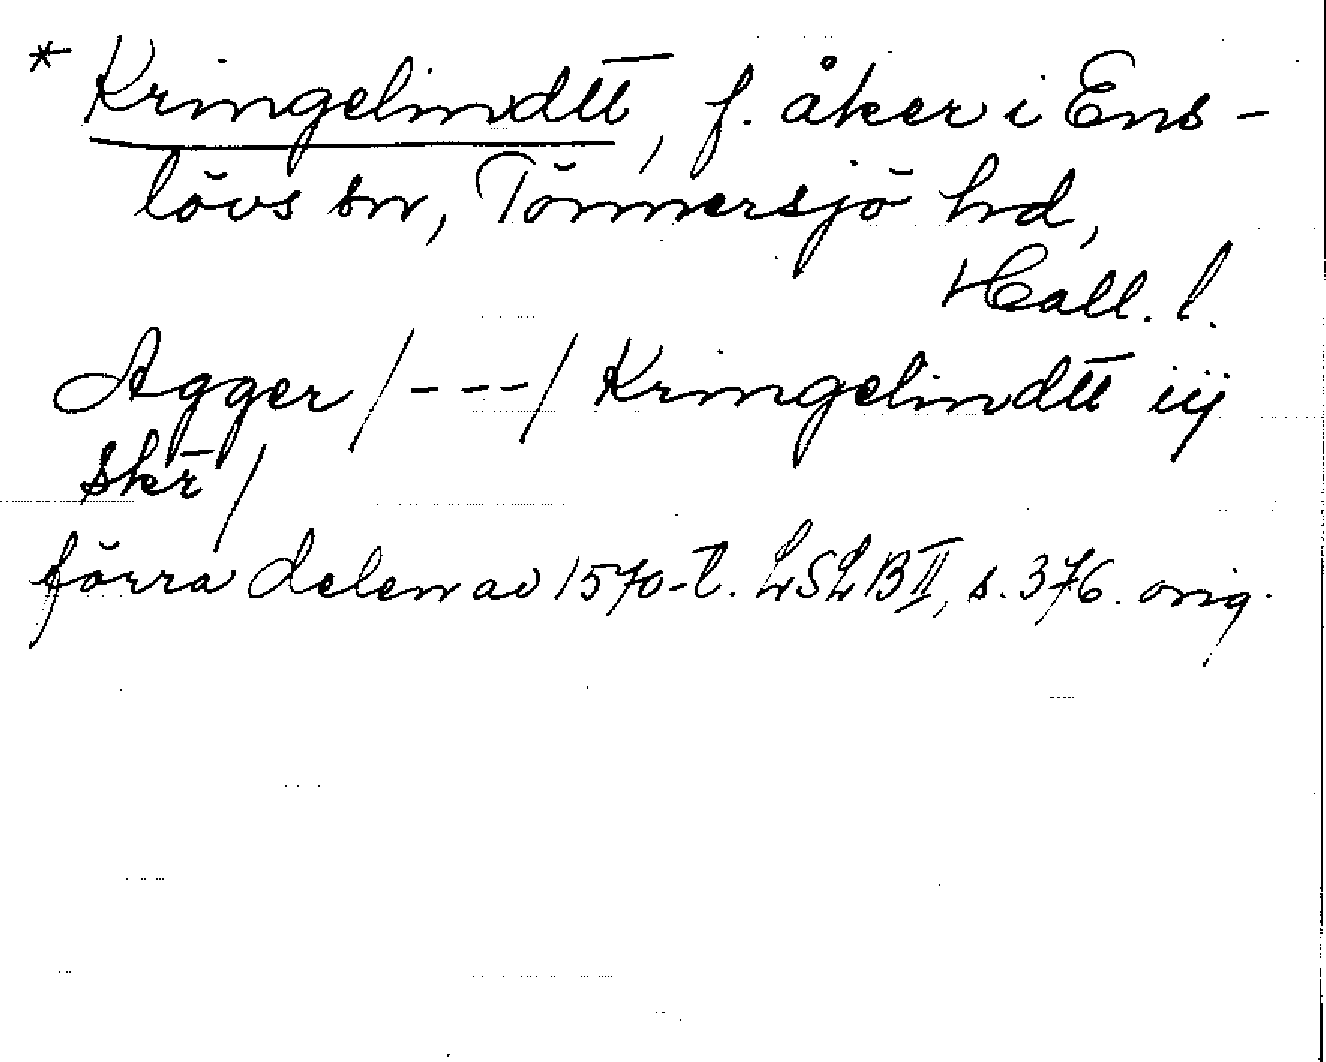 * Kringelindtt, f. åker i Ens-
lövs sn, Tönnersjö hd,
Hall. l.
Agger /---/ Kringelindtt iij
skr̄ /
förra delen av 1570-t. LSLB II, s. 376. orig.